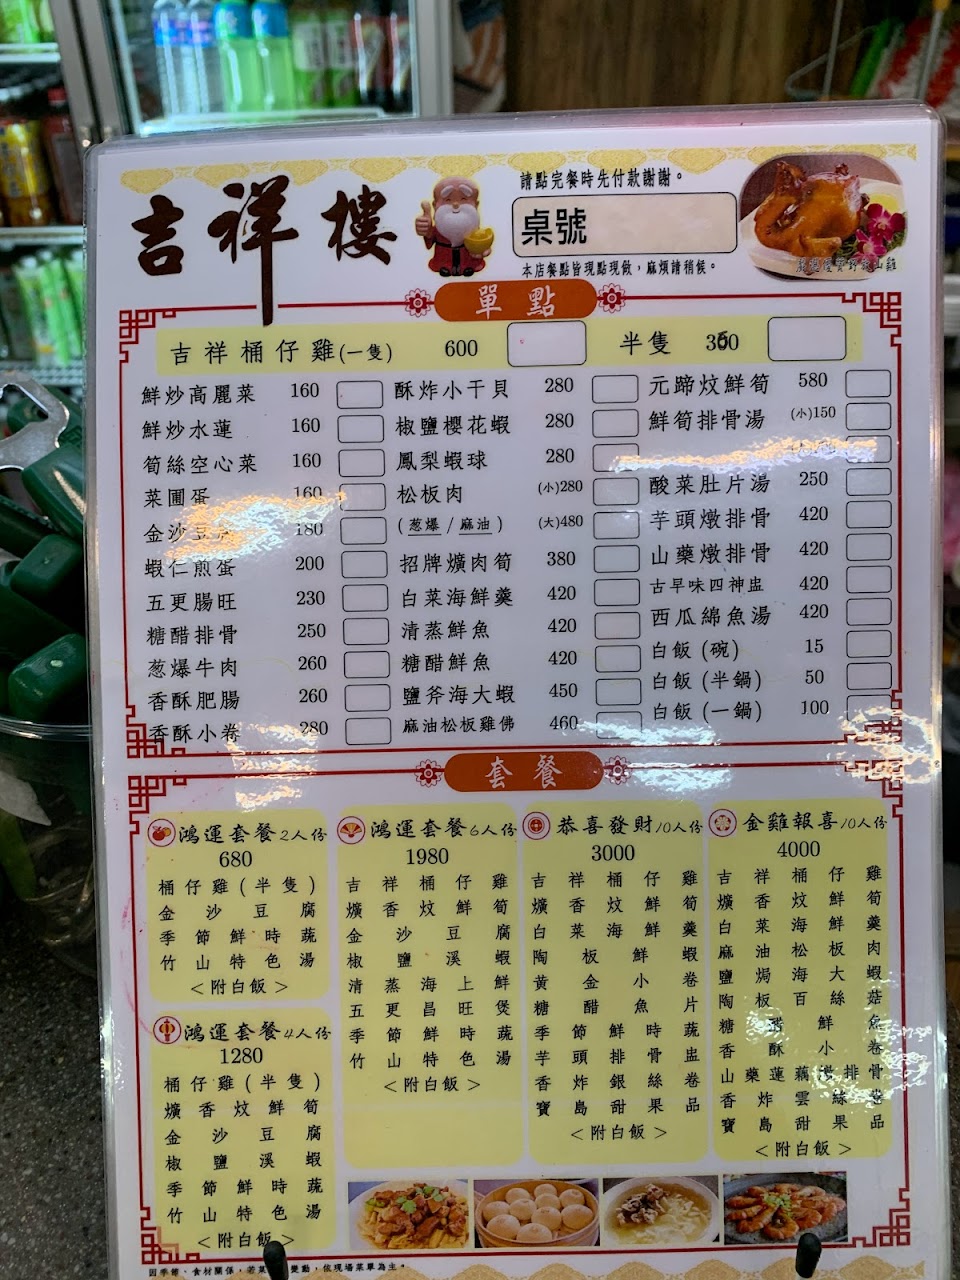 吉祥樓
請點完餐時先付款謝謝。
桌號
本店餐點皆現點現做，麻煩請稍候。
單點
吉祥桶仔雞(一隻) 600 半隻 350
鮮炒高麗菜 160
鮮炒水蓮 160
筍絲空心菜 160
菜圃蛋 160
金沙豆腐 180
蝦仁煎蛋 200
五更腸旺 230
糖醋排骨 250
葱爆牛肉 260
香酥肥腸 260
香酥小卷 280
酥炸小干貝 280
椒鹽櫻花蝦 280
鳳梨蝦球 280
松板肉 (小)280
(葱爆/麻油) (大)480
招牌爌肉筍 380
白菜海鮮羹 420
清蒸鮮魚 420
糖醋鮮魚 420
鹽斧海大蝦 450
麻油松板雞佛 460
元蹄炆鮮筍 580
鮮筍排骨湯 (小)150
酸菜肚片湯 250
芋頭燉排骨 420
山藥燉排骨 420
古早味四神盅 420
西瓜綿魚湯 420
白飯(碗) 15
白飯(半鍋) 50
白飯(一鍋) 100
套餐
鴻運套餐2人份
680
桶仔雞(半隻)
金沙豆腐
季節鮮時蔬
竹山特色湯
<附白飯>
鴻運套餐4人份
1280
桶仔雞(半隻)
爌香炆鮮筍
金沙豆腐
椒鹽溪蝦
季節鮮時蔬
竹山特色湯
<附白飯>
鴻運套餐6人份
1980
吉祥桶仔雞
爌香炆鮮筍
金沙豆腐
椒鹽溪蝦
清蒸海上鮮
五更昌旺煲
季節鮮時蔬
竹山特色湯
<附白飯>
恭喜發財10人份
3000
吉祥桶仔雞
爌香炆鮮筍
白菜海鮮羹
陶板鮮蝦
黃金小卷
糖醋魚片
季節鮮時蔬
芋頭排骨盅
香炸銀絲卷
寶島甜果品
<附白飯>
金雞報喜10人份
4000
吉祥桶仔雞
爌香炆鮮筍
白菜海鮮羹
麻油松板肉
鹽焗海大蝦
陶板百絲菇
糖醋鮮魚
香酥小卷
山藥蓮藕燉排骨
香炸雲絲卷
寶島甜果品
<附白飯>
因季節、食材關係，若菜 變動，依現場菜單為主。